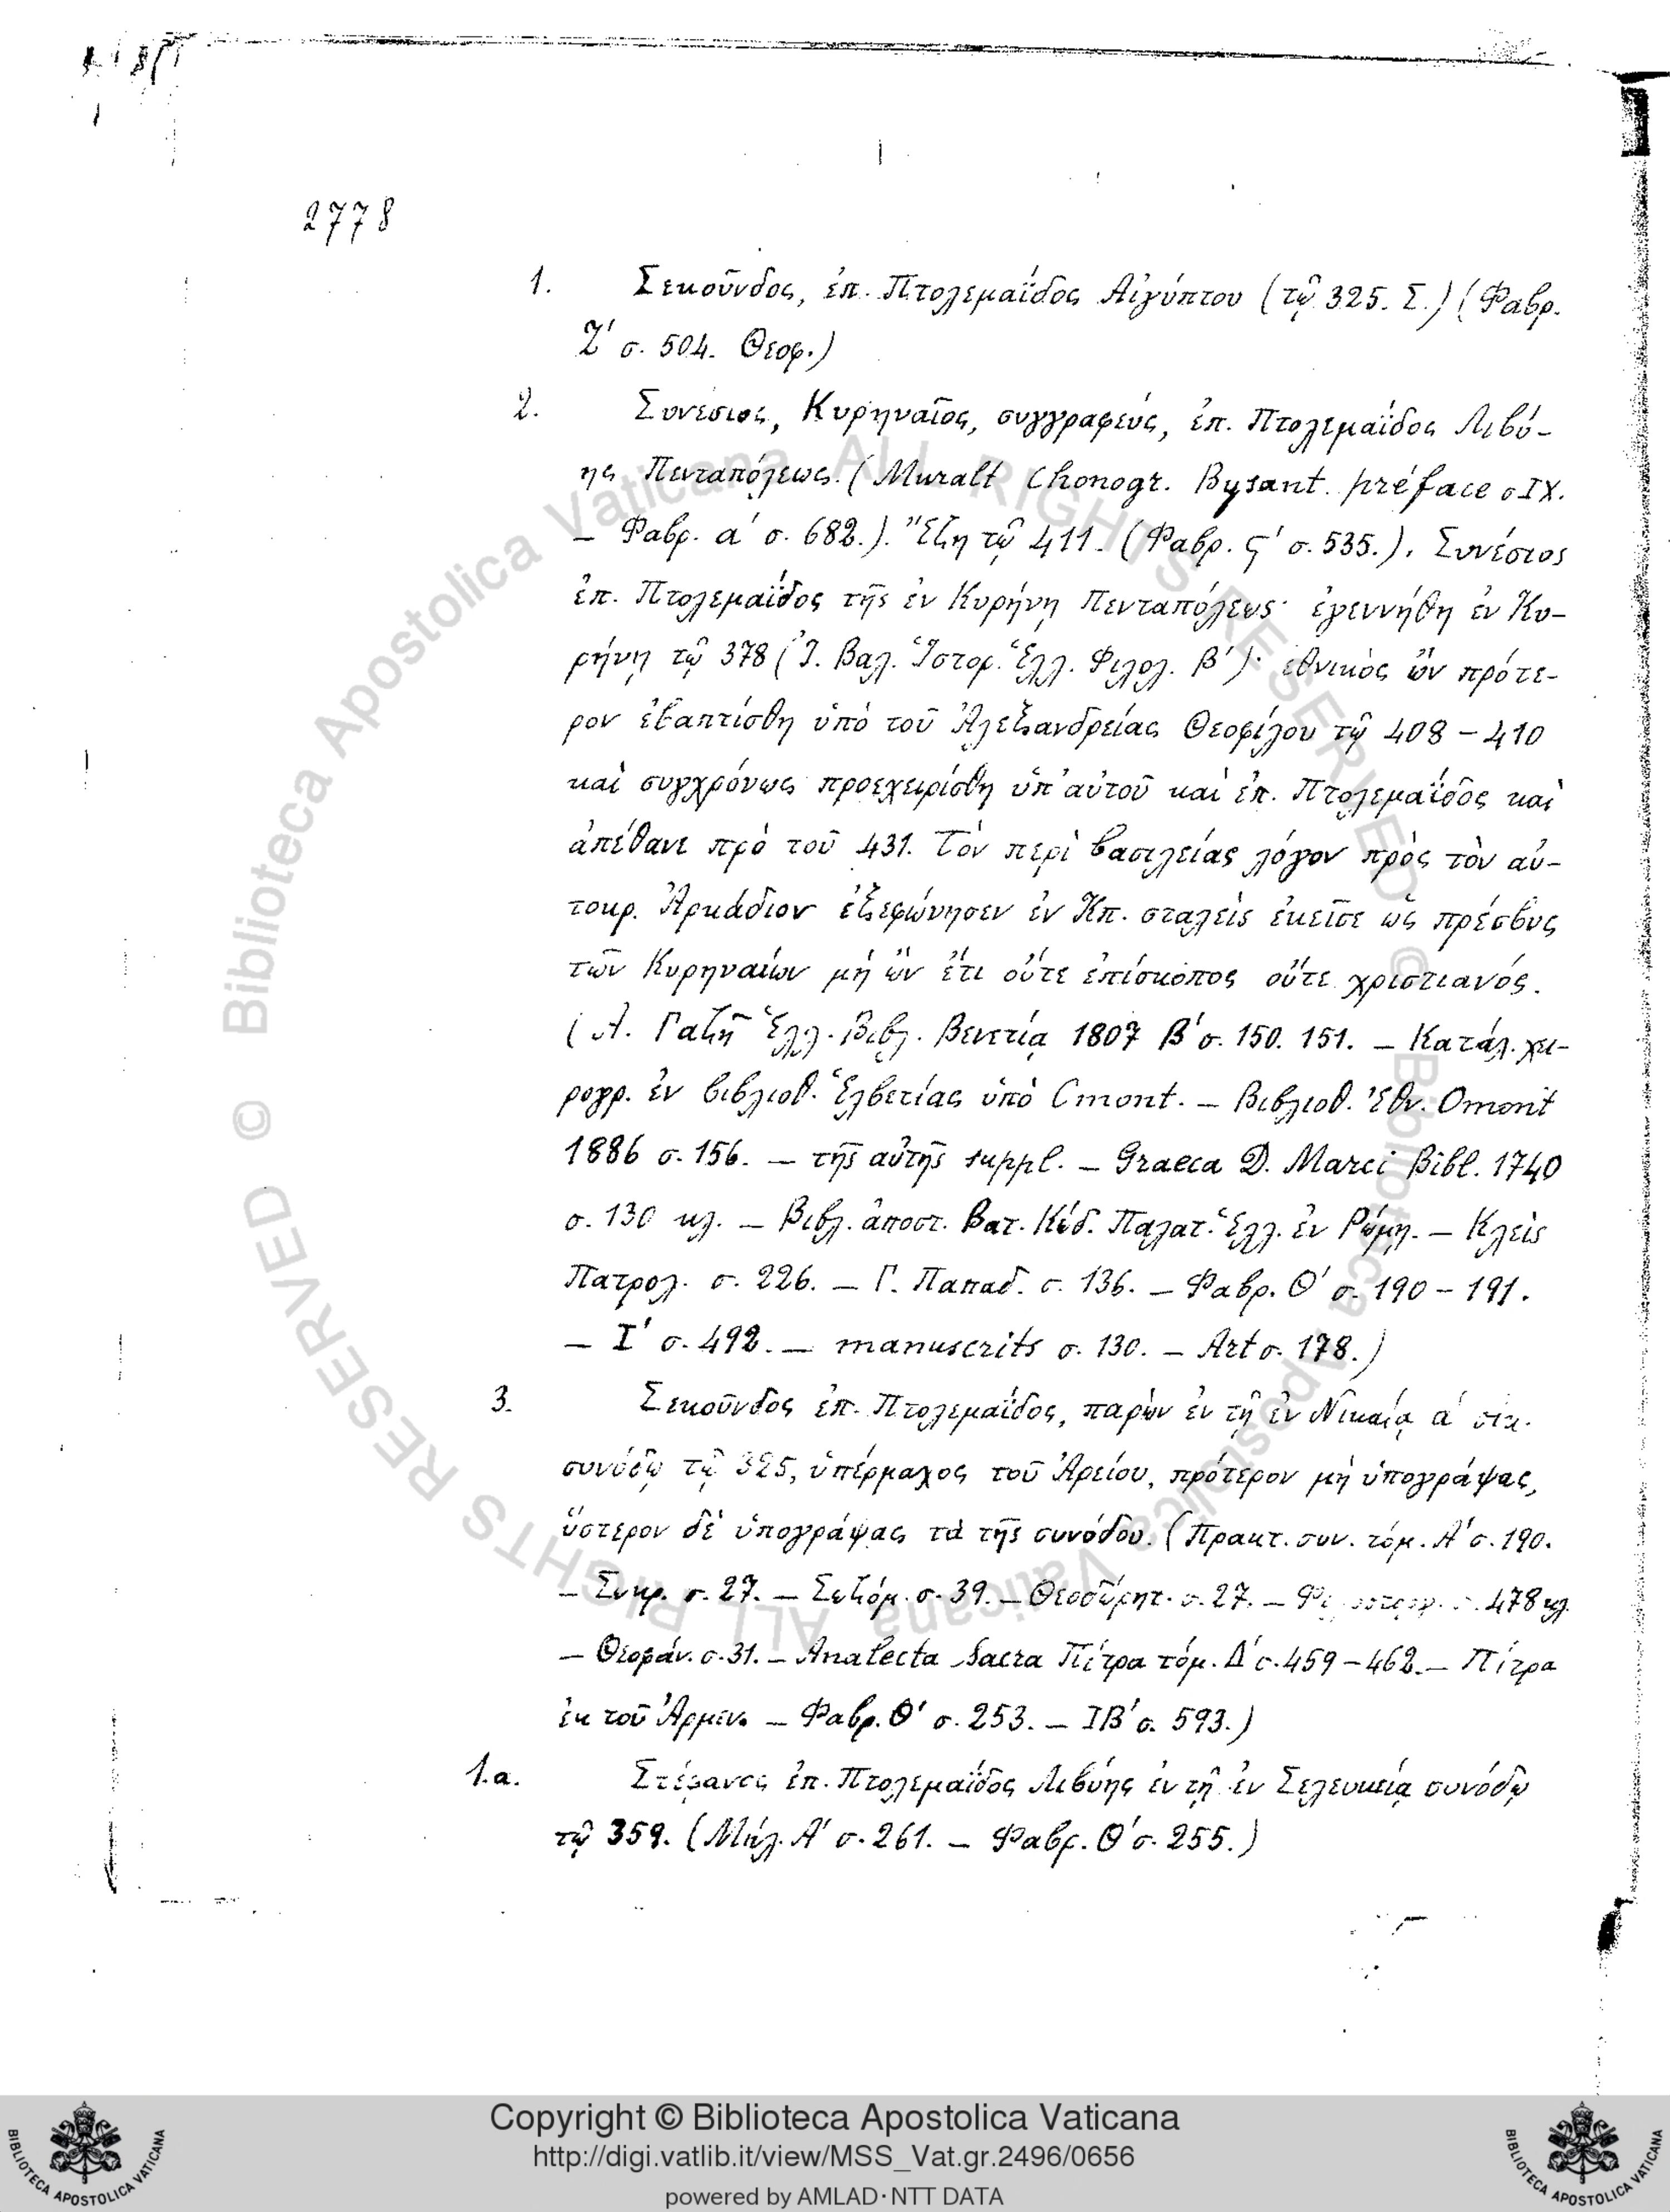 2778
1. Σεκοῦνδος, ἐπ. Πτολεμαΐδος Αἰγύπτου (τῷ 325. Σ.) (Φαβρ.
Ζ' σ. 504. Θεοφ.)
2. Συνέσιος, Κυρηναῖος, συγγραφεύς, ἐπ. Πτολεμαΐδος Λιβύ-
ης Πενταπόλεως. (Muralt Chonogr. Bysant. préface σ IX.
— Φαβρ. α' σ. 682.). Ἔζη τῷ 411. (Φαβρ. ς' σ. 535.). Συνέσιος
ἐπ. Πτολεμαΐδος τῆς ἐν Κυρήνῃ Πενταπόλεως· ἐγεννήθη ἐν Κυ-
ρήνῃ τῷ 378 (Ἰ. Βαλ. Ἱστορ. Ἑλλ. Φιλολ. β')· ἐθνικὸς ὢν πρότε-
ρον ἐβαπτίσθη ὑπὸ τοῦ Ἀλεξανδρείας Θεοφίλου τῷ 408 – 410
καὶ συγχρόνως προεχειρίσθη ὑπ' αὐτοῦ καὶ ἐπ. Πτολεμαΐδος καὶ
ἀπέθανε πρὸ τοῦ 431. Τὸν περὶ βασιλείας λόγον πρὸς τὸν αὐ-
τοκρ. Ἀρκάδιον ἐξεφώνησεν ἐν Κπ. σταλεὶς ἐκεῖσε ὡς πρέσβυς
τῶν Κυρηναίων μὴ ὢν ἔτι οὔτε ἐπίσκοπος οὔτε χριστιανός.
(Α. Γαζῆ Ἑλλ. Βιβλ. Βενετίᾳ 1807 Β' σ. 150. 151. — Κατάλ. χει-
ρογρ. ἐν βιβλιοθ. Ἑλβετίας ὑπὸ Omont. — Βιβλιοθ. Ἐθν. Omont
1886 σ. 156. — τῆς αὐτῆς suppl. — Graeca D. Marci Bibl. 1740
σ. 130 κλ. — Βιβλ. ἀποστ. Βατ. Κώδ. Παλατ. Ἑλλ. ἐν Ρώμῃ. — Κλεὶς
Πατρολ. σ. 226. — Γ. Παπαδ. σ. 136. — Φαβρ. Θ' σ. 190 – 191.
— Ι' σ. 492. — manuscrits σ. 130. — Art σ. 178.)
3. Σεκοῦνδος ἐπ. Πτολεμαΐδος, παρὼν ἐν τῇ ἐν Νικαίᾳ α' οἰκ.
συνόδῳ τῷ 325, ὑπέρμαχος τοῦ Ἀρείου, πρότερον μὴ ὑπογράψας,
ὕστερον δὲ ὑπογράψας τὰ τῆς συνόδου. (Πρακτ. συν. τόμ. Α' σ. 190.
— Σωκρ. σ. 27. — Σωζόμ. σ. 39. — Θεοδώρητ. σ. 27. — 478 κλ.
— Θεοφάν. σ. 31. — Analecta Sacra Πίτρα τόμ. Δ' σ. 459 – 462. — Πίτρα
ἐκ τοῦ Ἀρμεν. — Φαβρ. Θ' σ. 253. — ΙΒ' σ. 593.)
1.a. Στέφανος ἐπ. Πτολεμαΐδος Λιβύης ἐν τῇ ἐν Σελευκείᾳ συνόδῳ
τῷ 359. (Μήλ. Α' σ. 261. — Φαβρ. Θ' σ. 255.)
© Biblioteca Apostolica Vaticana ALL RIGHTS RESERVED © Biblioteca Apostolica Vaticana ALL RIGHTS RESERVED
Copyright © Biblioteca Apostolica Vaticana
http://digi.vatlib.it/view/MSS_Vat.gr.2496/0656
powered by AMLAD·NTT DATA
BIBLIOTECA APOSTOLICA VATICANA
BIBLIOTECA APOSTOLICA VATICANA